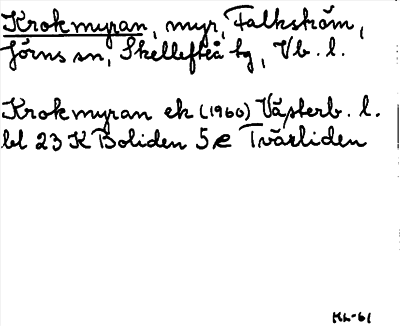 Krokmyran, myr, Falkström,
Jörns sn, Skellefteå tg, Vb. l.
Krokmyran ek (1960) Västerb. l.
bl 23 K Boliden 5 e Tvärliden
ML-61